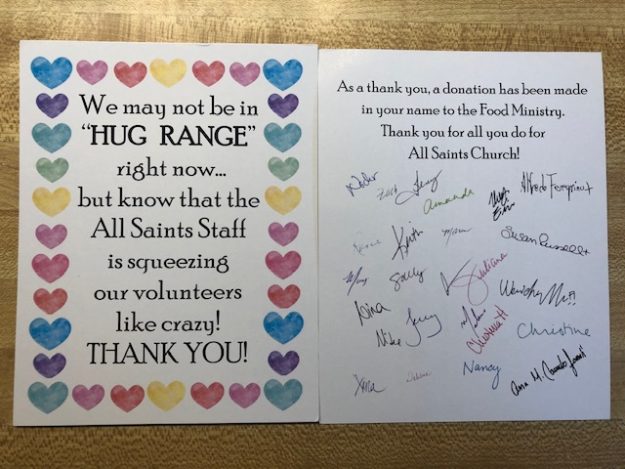 We may not be in
“HUG RANGE”
right now...
but know that the
All Saints Staff
is squeezing
our volunteers
like crazy!
THANK YOU!
As a thank you, a donation has been made
in your name to the Food Ministry.
Thank you for all you do for
All Saints Church!
Amanda
Keith
Susan Russell
Sally
Juliana
Dina
Mike
Christina H
Christine
Nancy
Xena
Ana